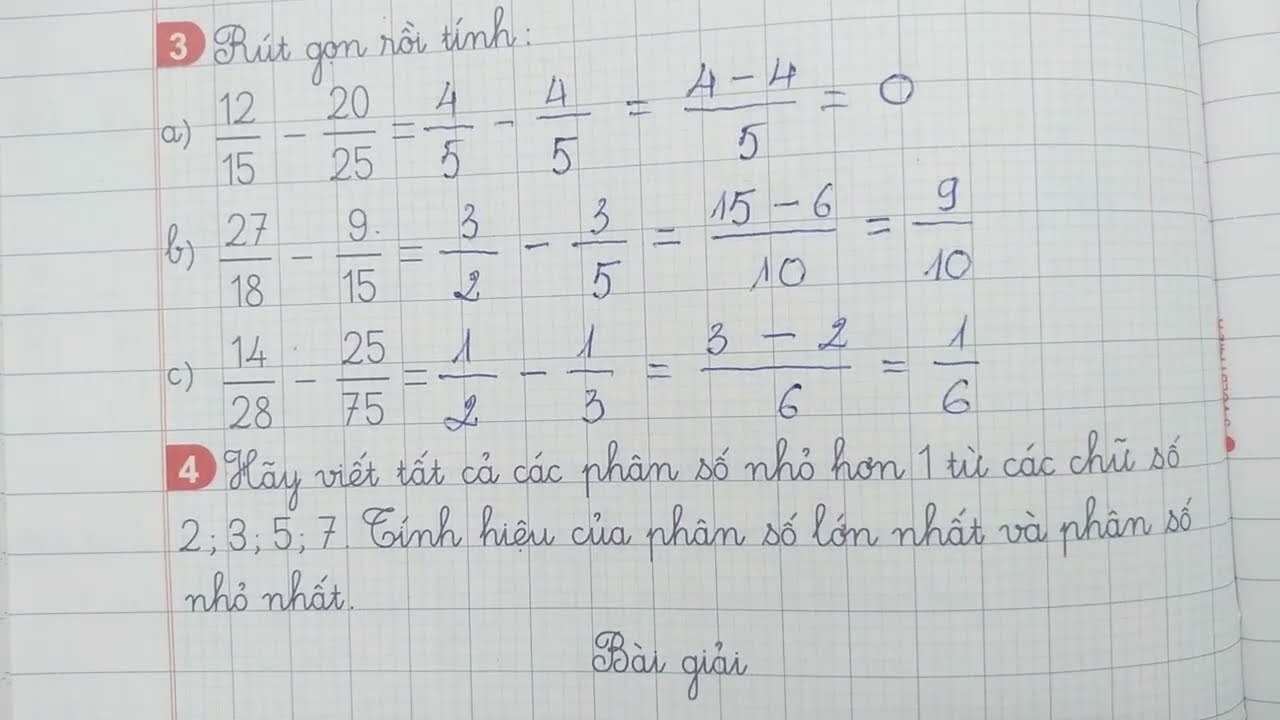 3 Rút gọn rồi tính:
a) 12/15 - 20/25 = 4/5 - 4/5 = (4 - 4)/5 = 0
b) 27/18 - 9/15 = 3/2 - 3/5 = (15 - 6)/10 = 9/10
c) 14/28 - 25/75 = 1/2 - 1/3 = (3 - 2)/6 = 1/6
4 Hãy viết tất cả các phân số nhỏ hơn 1 từ các chữ số
2; 3; 5; 7. Tính hiệu của phân số lớn nhất và phân số
nhỏ nhất.
Bài giải